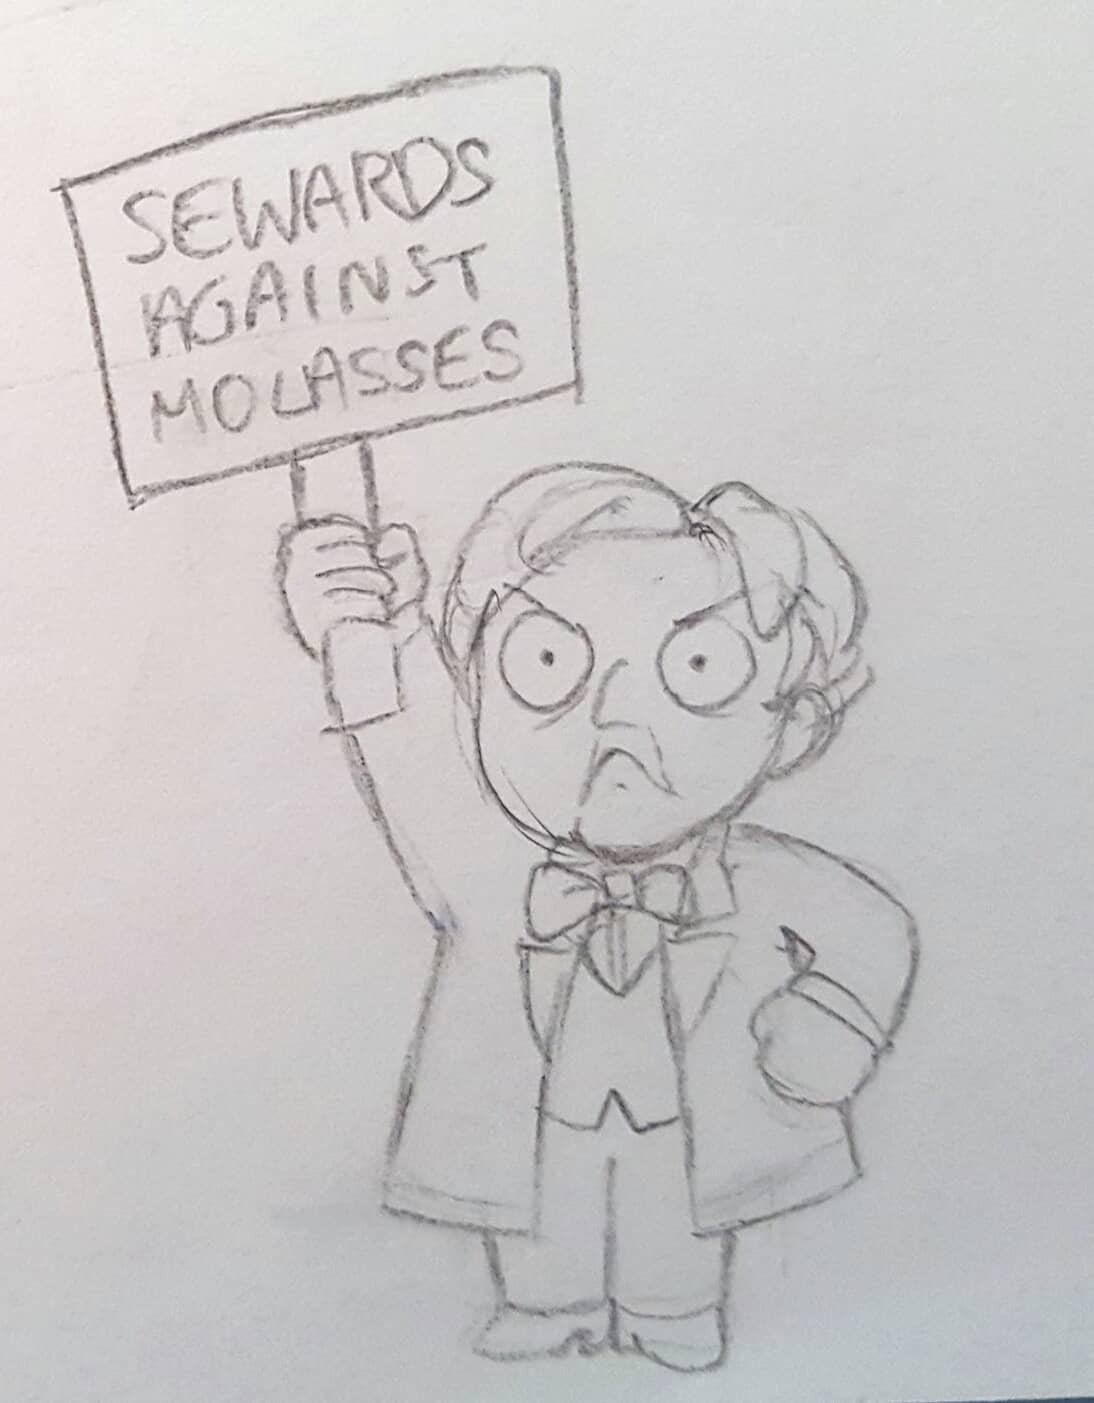 SEWARDS
AGAINST
MOLASSES